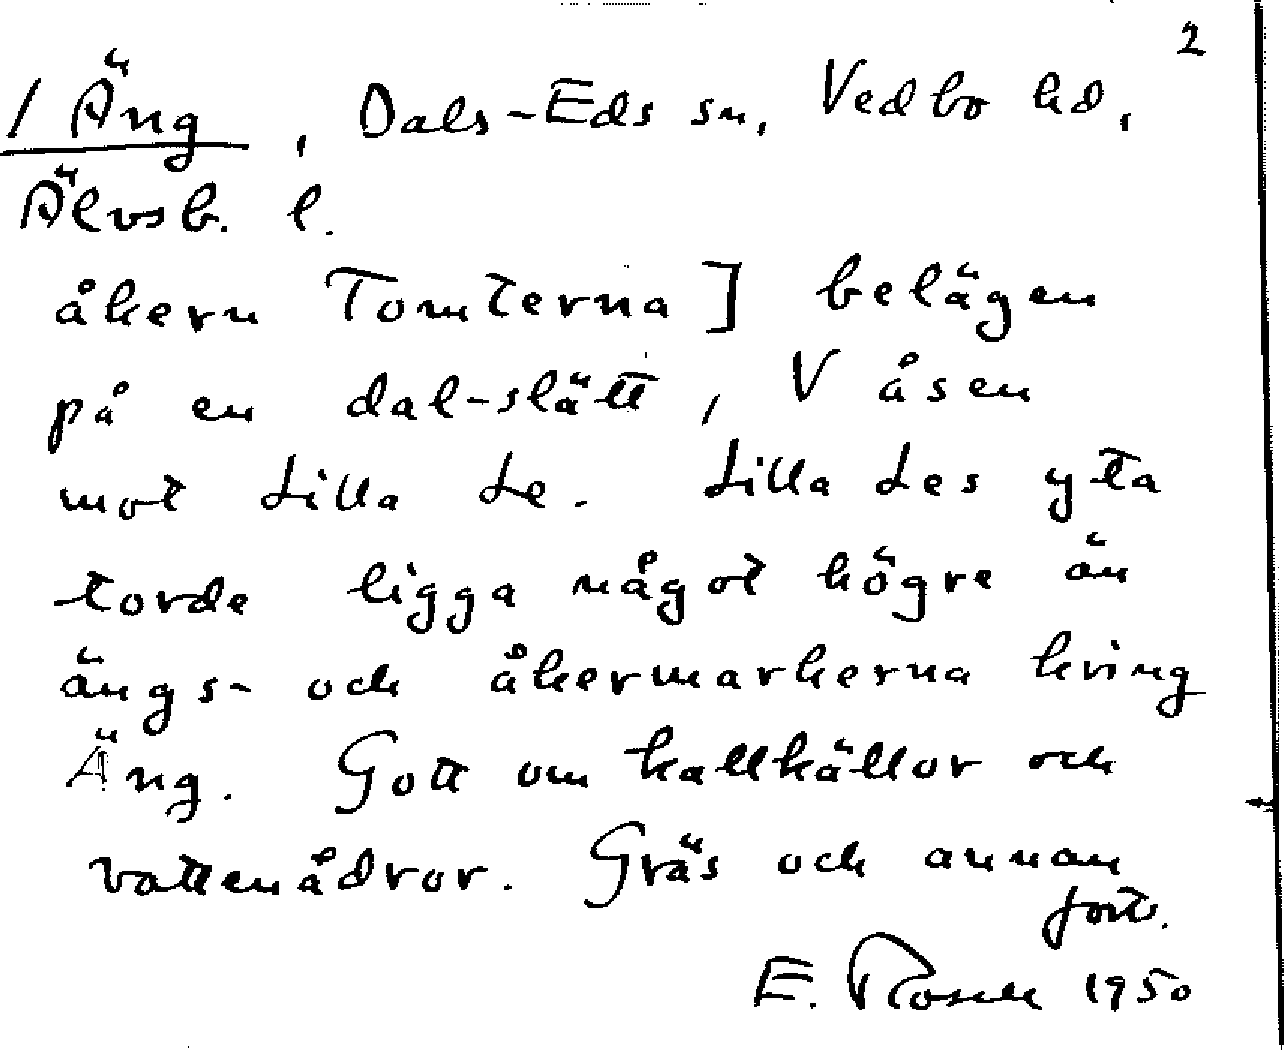 2
/ Äng, Dals-Eds sn, Vedbo hd,
Älvsb. l.
åkern Tomterna] belägen
på en dal-slätt, V åsen
mot Lilla Le. Lilla Les yta
torde ligga något högre än
ängs- och åkermarkerna kring
Äng. Gott om kallkällor och
vattenådror. Gräs och annan
forts.
E. Rosell 1950